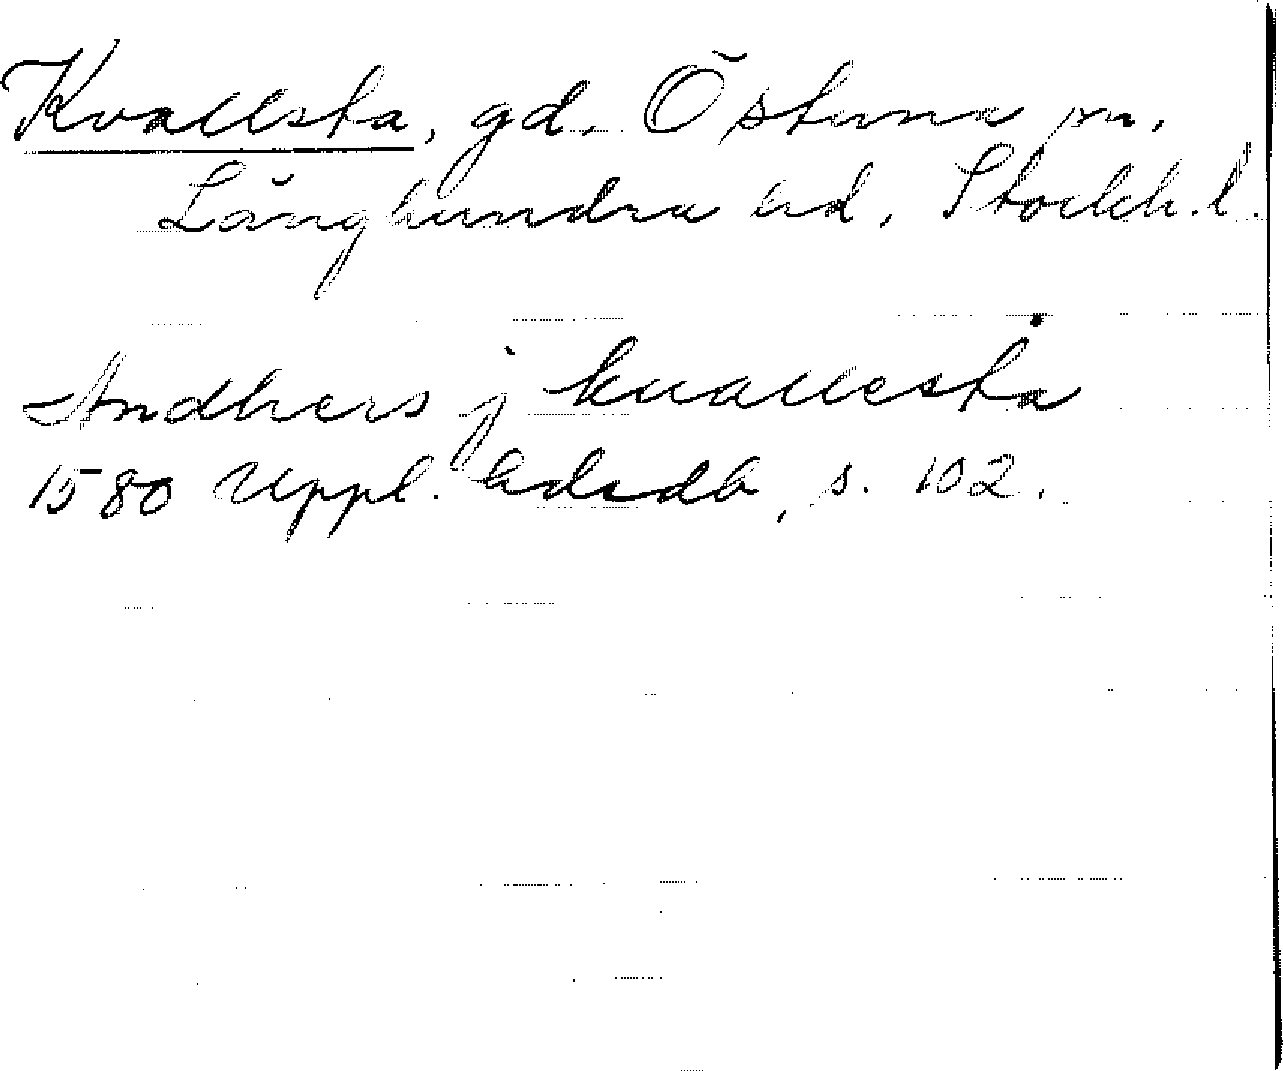 Kvallsta, gd, Östuna sn,
Långhundra hd, Stockh. l.
Andhers j kuallesta
1580 Uppl. hdsdb, s. 102.